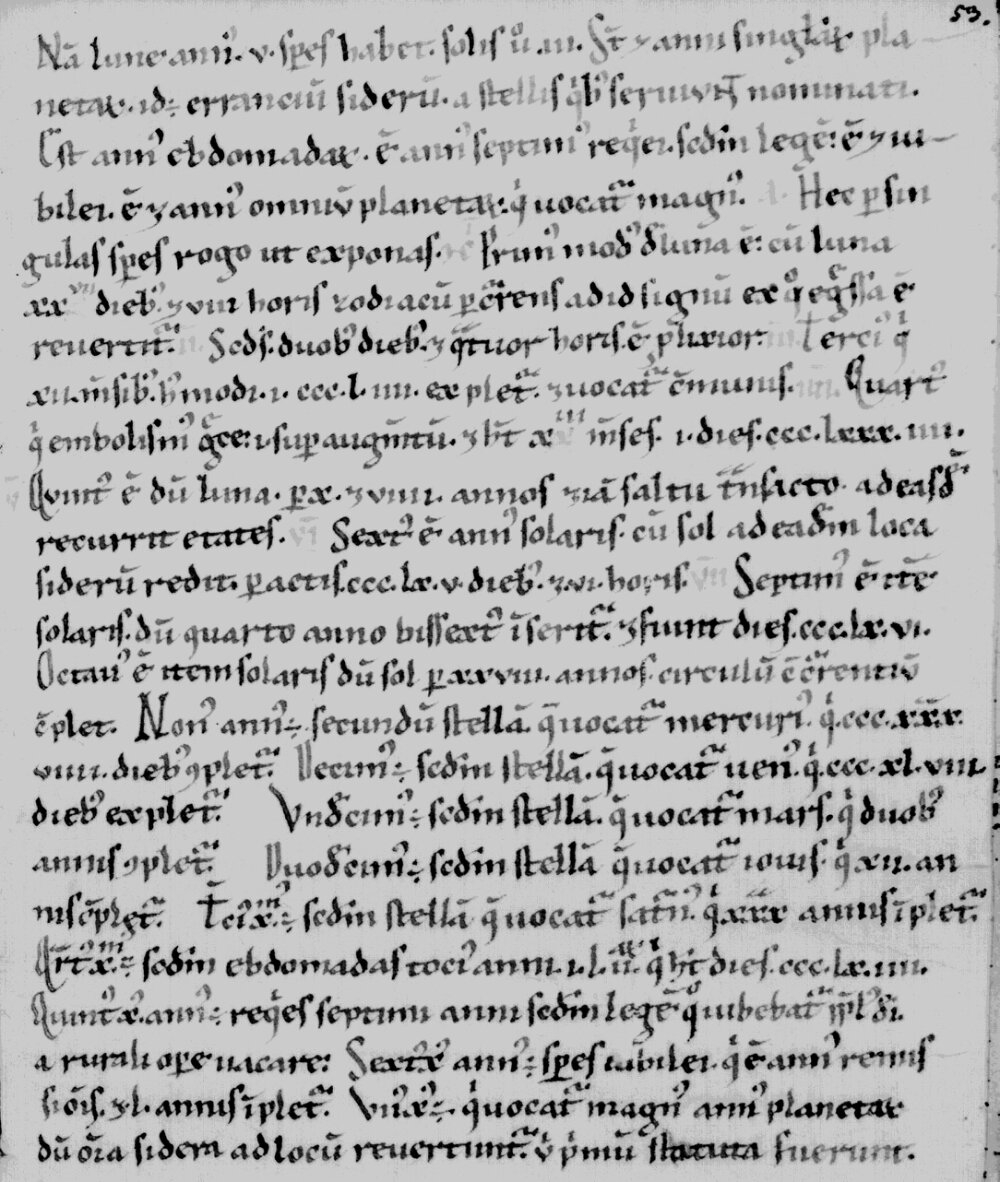 53.
Nā lune annꝰ. v. sp̄es habet. solis ū. iii. St̄ ⁊ anni singlaꝝ pla
netaꝝ. id÷ erranciū siderū. a stellis qͥbꝰ seruiuns̄ nominati.
Est annꝰ ebdomadaꝝ. ē annꝰ septimꝰ reqͥei. scd̄m legē: ē ⁊ iu
bilei. ē ⁊ annꝰ omniū planetaꝝ: qͥ uocat᷑ magnꝰ. Hec ꝑ sin
gulas sp̄es rogo ut exponas. Primꝰ modꝰ d̄ luna ē: cū luna
xxvii diebꝰ. ⁊ viii horis zodiacū ꝑcr̄rens ad id signū ex qͦ eg̃ssa ē
reuertit᷑. Scd̄s. duobꝰ diebꝰ. ⁊ qͣtuor horis. ē ꝓlixior. Terciꝰ qͥ
xii m̄sibꝰ. hꝰmodi. i. ccc. l. iiii. explet᷑. ⁊ uocat᷑ cōmunis. Quartꝰ
qͥ embolismꝰ gͨce: i. suꝑaugm̄tū. ⁊ ht̄ xiii m̄ses. i. dies. ccc. lxxx. iiii.
Quintꝰ ē dū luna. ꝑ x. ⁊ viiii. annos ⁊ iā saltu tn̄sacto ad easd̄
recurrit etates. Sextꝰ ē annꝰ solaris. cū sol ad ead̄m loca
siderū redit. ꝑactis. ccc. lx. v. diebꝰ. ⁊ vi. horis. Septimꝰ ē itē
solaris. dū quarto anno bissextꝰ īserit᷑. ⁊ fiunt dies. ccc. lx. vi.
Octauꝰ ē item solaris dū sol ꝑ xxviii. annos. circulū cōcr̄rentiū
cōplet. Nonꝰ annꝰ÷ secundū stellā. q̄ uocat᷑ mercuriꝰ. qͥ. ccc. xxx.
viiii. diebꝰ ꝯplet᷑. Decimꝰ÷ scd̄m stellā. q̄ uocat᷑ uenꝰ. qͥ. ccc. xl. viii.
diebꝰ explet᷑. Vnd̄cimꝰ÷ scd̄m stellā. q̄ uocat᷑ mars. qͥ duobꝰ
annis ꝯplet᷑. Duod̄cimꝰ÷ scd̄m stellā q̄ uocat᷑ iouis. qͥ xii. an
nis cōplet᷑. Tciꝰxͫ.÷ scd̄m stellā q̄ uocat᷑ satn̄ꝰ. qͥ xxx annis īplet᷑.
Qr̄tꝰxͫ÷ scd̄m ebdomadas tociꝰ anni. i. l. ii. qͥ ht̄ dies. ccc. lx. iiii.
Quintꝰ.xꝰ. annꝰ÷ reqͥes septimi anni scd̄m legē. qͦ iubebat᷑ ppl̄ꝰ dī.
a rurali opere uacare: Sextꝰxꝰ annꝰ÷ sp̄es iubilei. qͥ ē annꝰ remis
siōis. ⁊ l. annis īplet᷑. Viiꝰxꝰ÷. qͥ uocat᷑ magnꝰ annꝰ planetaꝝ
dū oīa sidera ad locū reuertunt᷑. ū pͥmū statuta fuerunt.